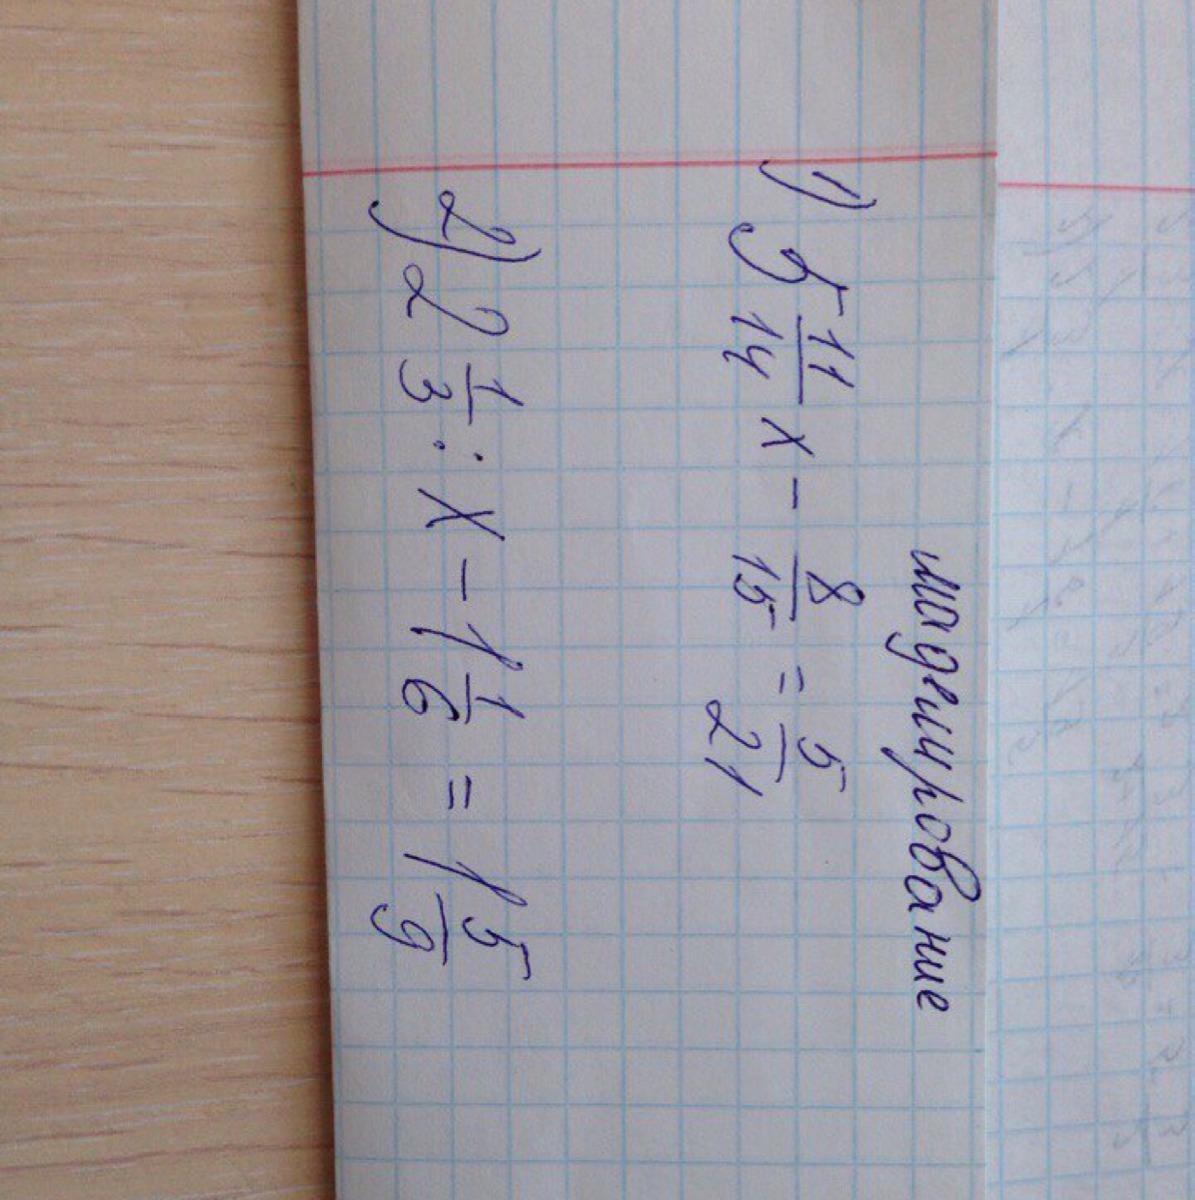 моделирование
1) 5 11/14 x - 8/15 = 5/21
2) 2 1/3 : x - 1 1/6 = 1 5/9